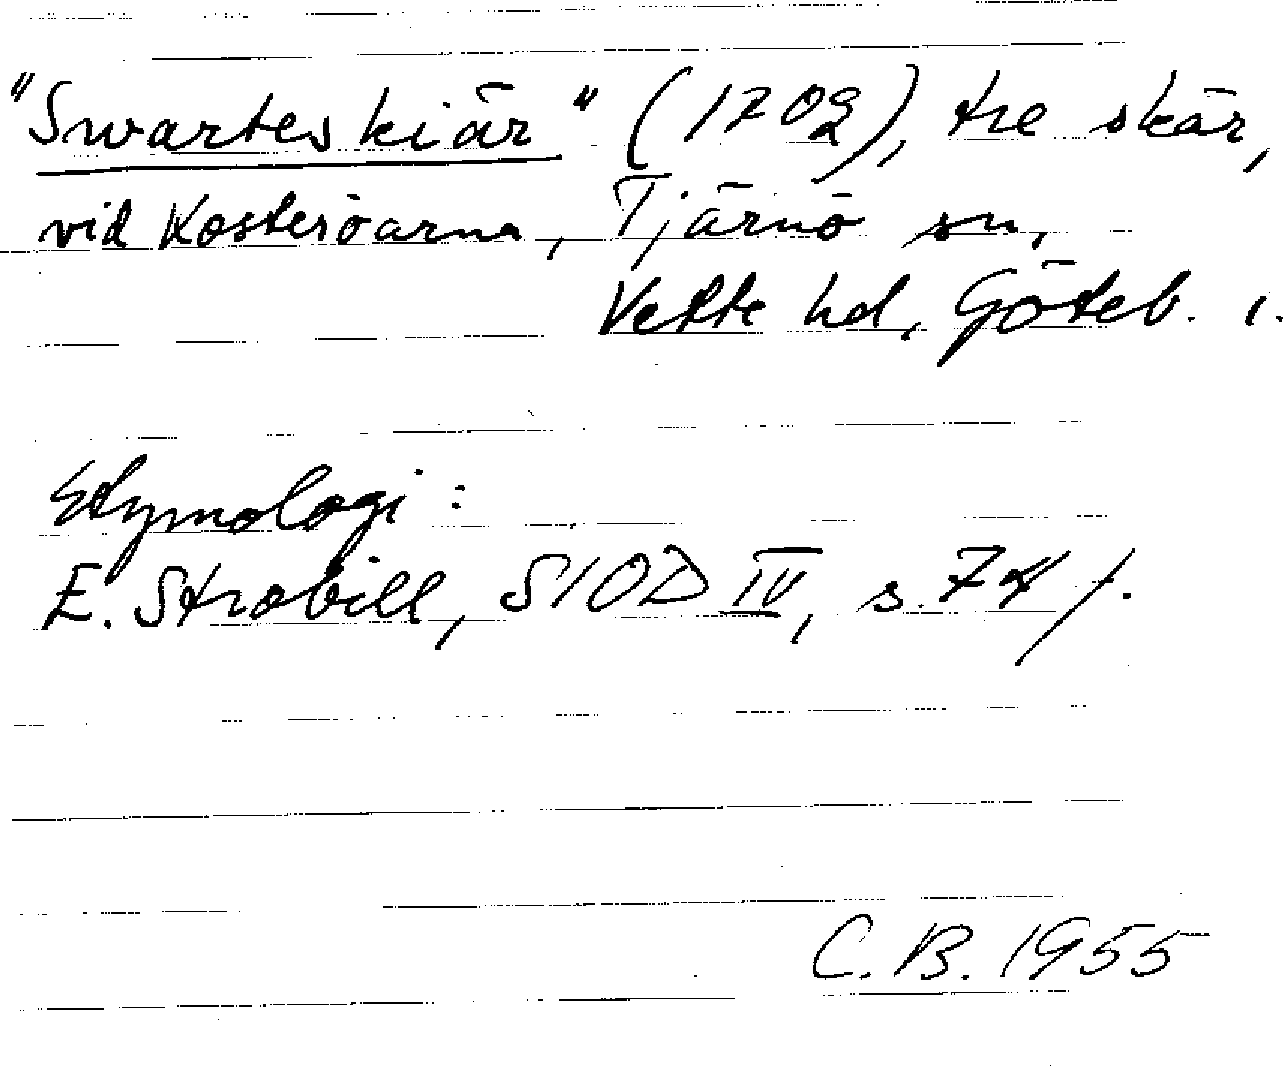 "Swarteskiär" (1702), tre skär,
vid Kosteröarna, Tjärnö sn,
Vette hd, Göteb. l.
Etymologi:
E. Strobill, SIOD IV, s. 74 f.
C.B. 1955